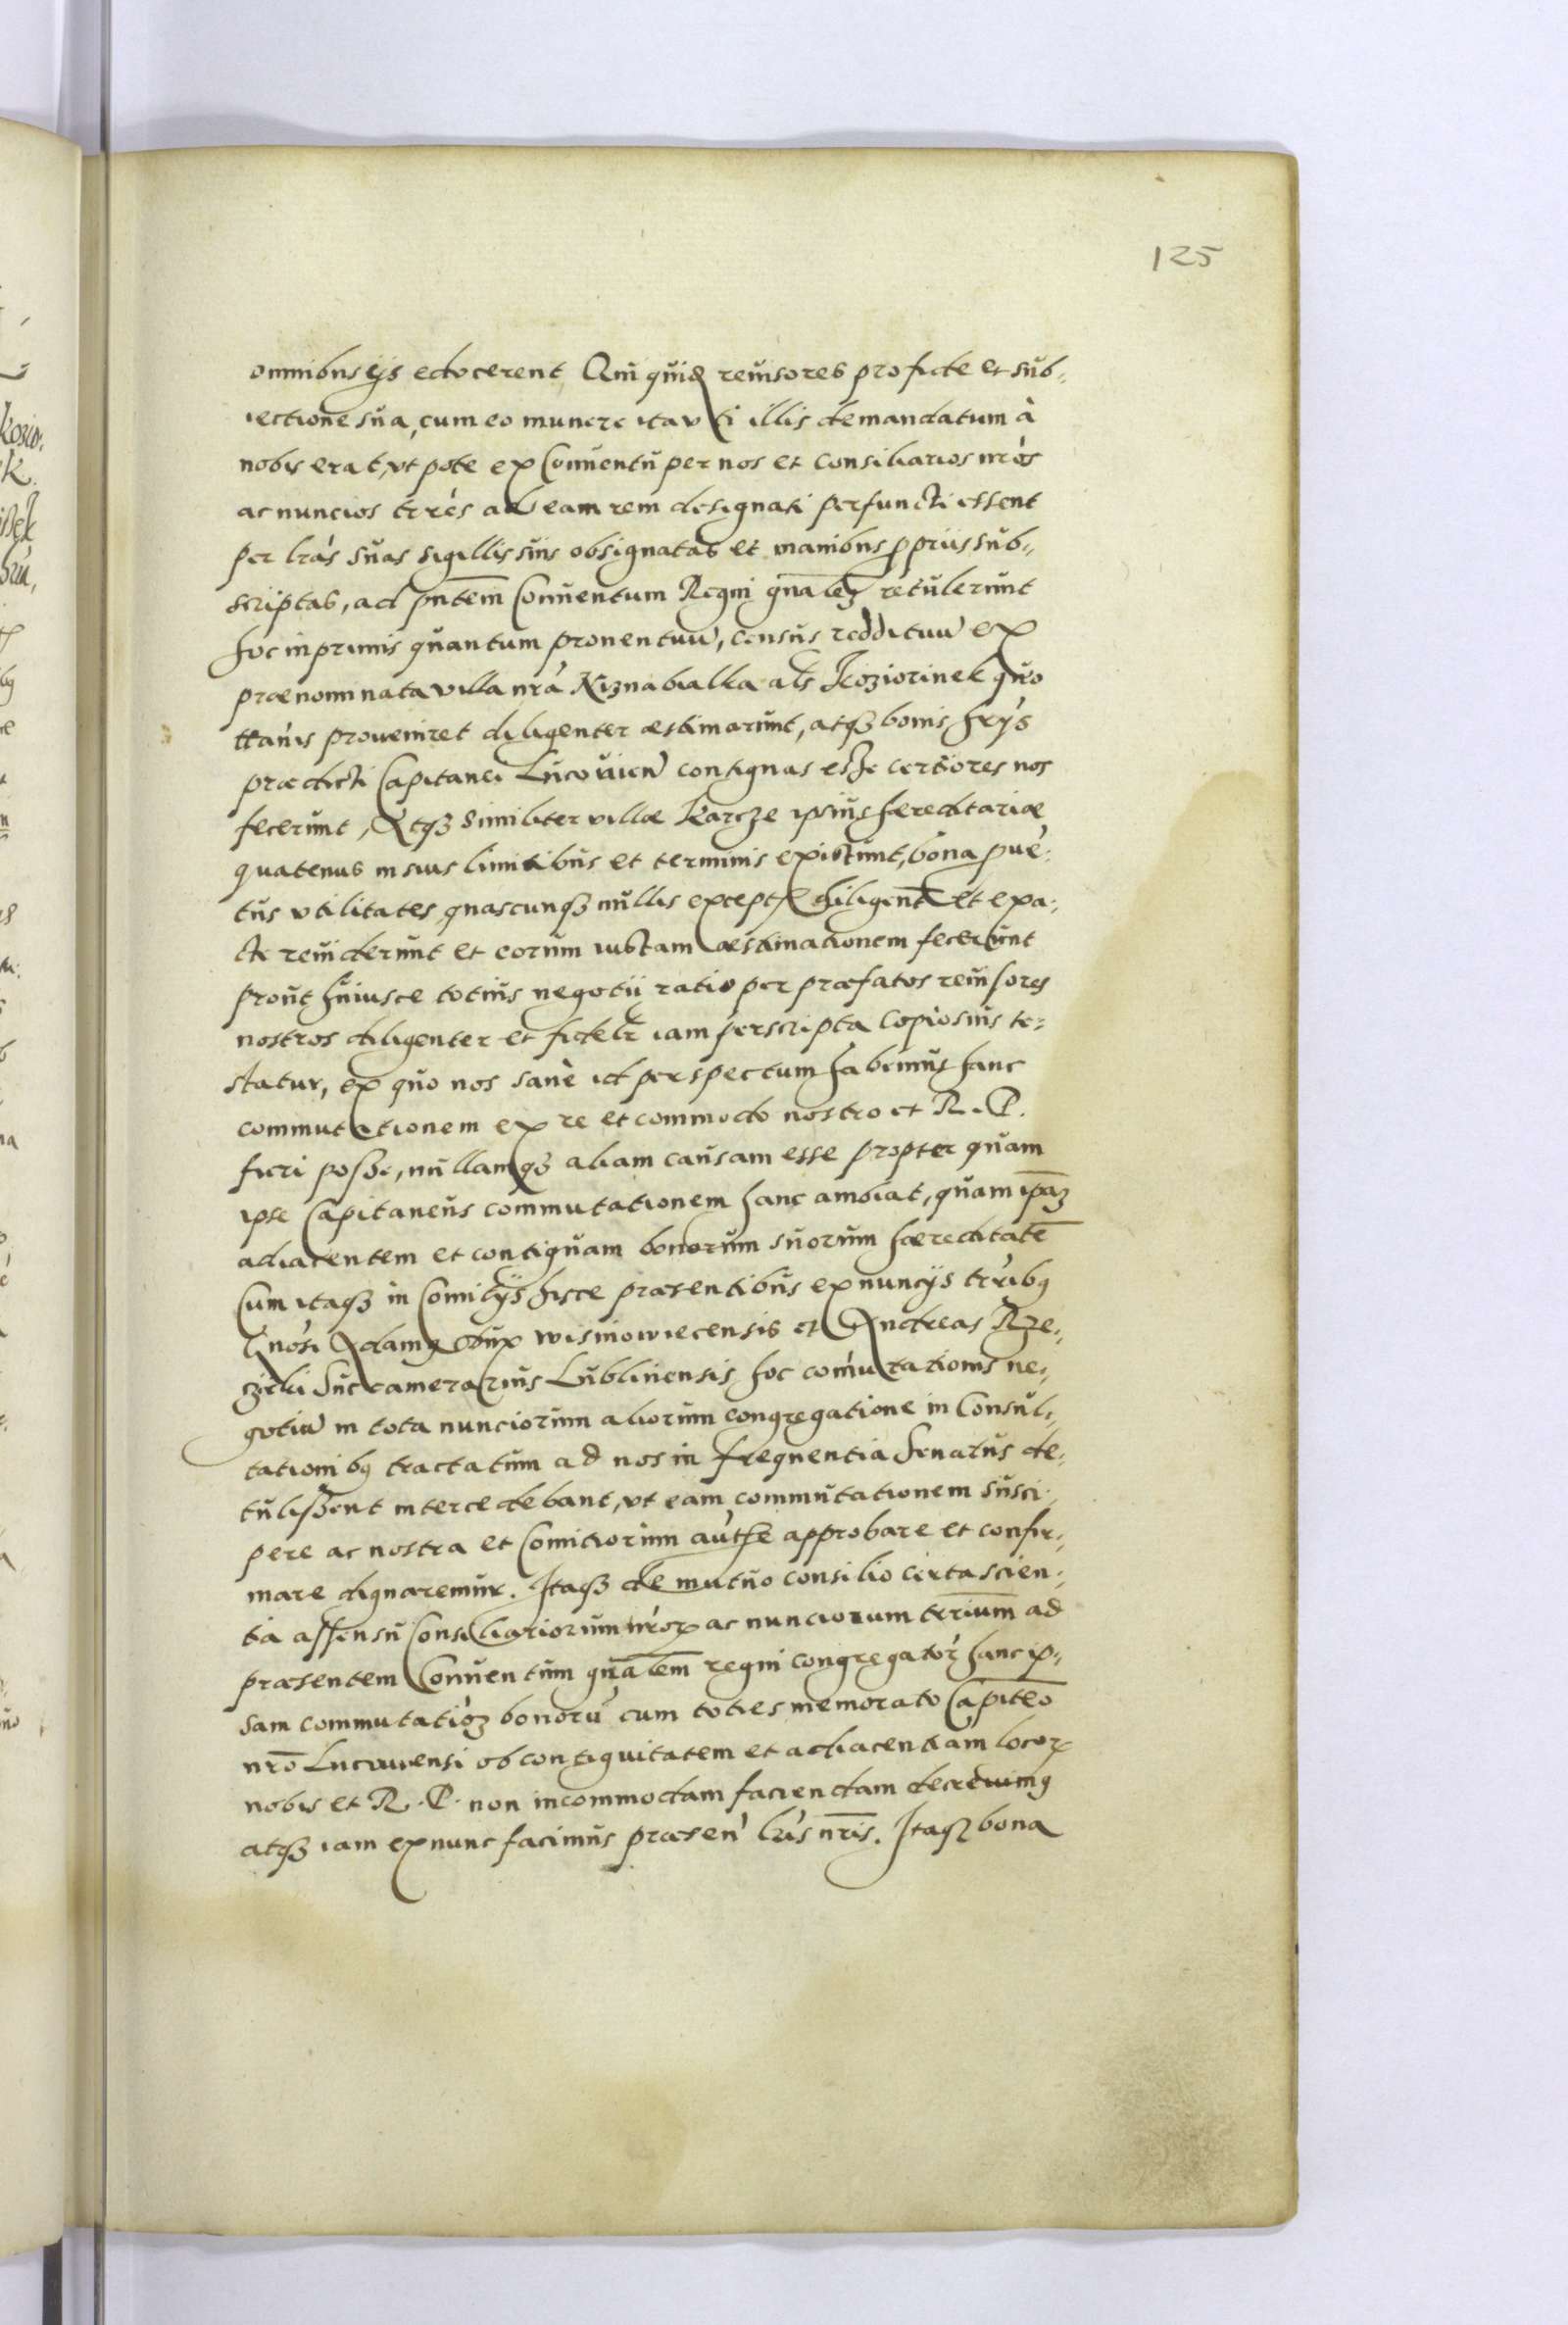 125
omnibus ijs edocerent Qui quid reuisores pro fide et sub¬
iectione sua, cum eo munere ita uti illis demandatum à
nobis erat, vt pote ex Conuentu per nos et consiliarios nrós
ac nuncios trrés ad eam rem designati perfuncti essent
per lrás suas sigillis suis obsignatas et manibus ppriis sub¬
scriptas, ad pñtem Conuentum Regni gñalez retulerunt
hoc inprimis quantum prouentuũ, census reddituũ ex
praenominata villa nrá Niznabialka als Koziorinek quo
ttánis proueniret diligenter aestimarunt, atq3 bonis hrijs
praedicti Capitanei Lucouien contiguas esse certiores nos
fecerunt, Atq3 similiter villae Karcze ipsius haereditariae
quatenus in suis limitibus et terminis existunt, bona pué¬
tus vtilitates quascunq3 nullis exceptis diligent et exa¬
cte reuiderunt et eorum iustam aestimationem fecerunt
prout huiusce totius negotii ratio per praefatos reuisores
nostros diligenter et fidelr iam perscripta copiosius te¬
statur, ex quo nos sanè id perspectum habemus hanc
commutationem ex re et commodo nostro et R. P.
fieri posse, nullamq3 aliam causam esse propter quam
ipse Capitaneus commutationem hanc ambiat, quam ipaz
adiacentem et contiguam bonorum suorum haereditatē
Cum itaq3 in Comitijs hisce praesentibus ex nuncijs trribq
Gnósi Adamq dux wisniowiecensis et Andreas Rze¬
zicki Succamerarius Lublinensis hoc comutationis ne¬
gotiũ in tota nunciorum aliorum congregatione in Consul¬
tationibq tractatum ad nos in frequentia Senatus de¬
tulissent intercedebant, vt eam commutationem susci
pere ac nostra et Comitiorum autte approbare et confir¬
mare dignaremur. Itaq3 de mutuo consilio certa scien¬
tia assensu Consiliariorum nror ac nunciorum trrium ad
praesentem Conuentum gñalem regni congregator hanc ip¬
sam commutatioz bonorũ cum toties memorato Capiteo
nrō Lucouiensi ob contiguitatem et adiacentiam locor
nobis et R. P. non incommodam faciendam decreuimq
atq3 iam ex nunc facimus praesen lris nris. Itaq3 bona